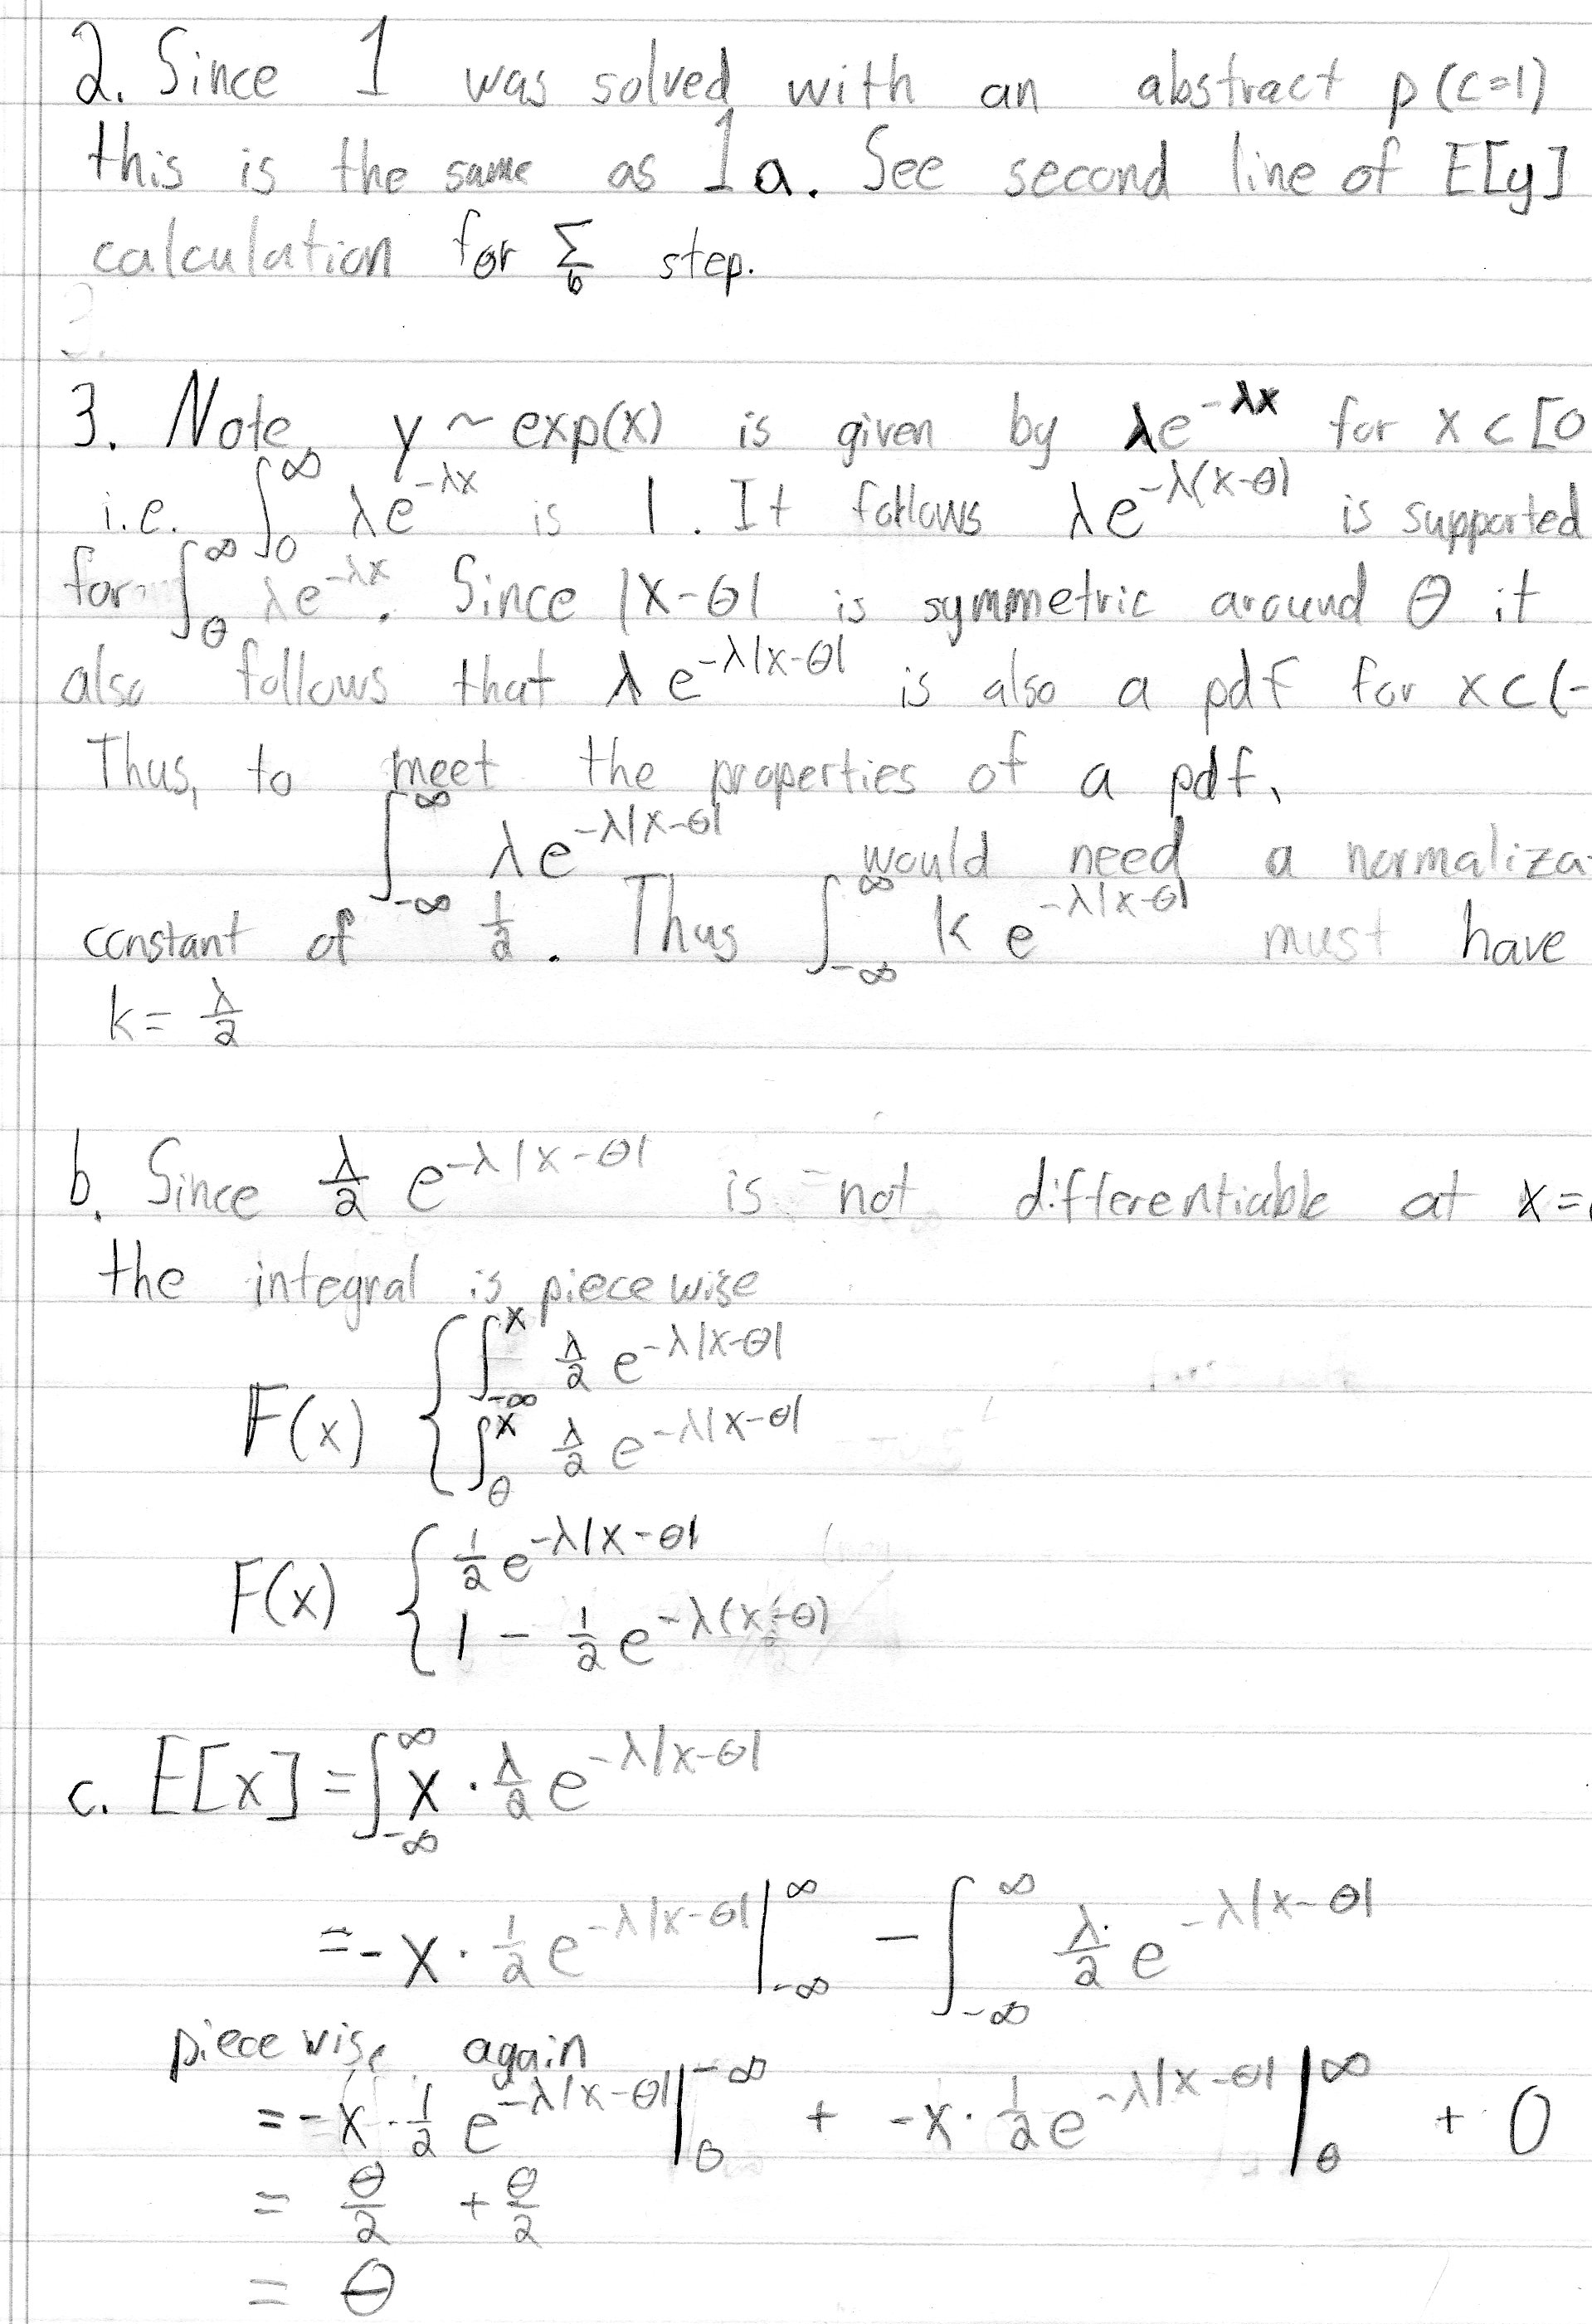 2. Since 1 was solved with an abstract p(c=1)
this is the same as 1a. See second line of E[y]
calculation for Σ_b step.
3. Note, y ~ exp(x) is given by λe^{-λx} for x ⊂ [0
i.e. ∫_0^∞ λe^{-λx} is 1. It follows λe^{-λ(x-θ)} is supported
for ∫_θ^∞ λe^{-λx}. Since |x-θ| is symmetric around θ it
also follows that λe^{-λ|x-θ|} is also a pdf for x ⊂ (-
Thus, to meet the properties of a pdf,
∫_{-∞}^∞ λe^{-λ|x-θ|} would need a normaliza-
constant of 1/2. Thus ∫_{-∞}^∞ k e^{-λ|x-θ|} must have
k = λ/2
b. Since λ/2 e^{-λ|x-θ|} is not differentiable at x=
the integral is piecewise
F(x) { ∫_{-∞}^x λ/2 e^{-λ|x-θ|}
∫_θ^x λ/2 e^{-λ|x-θ|}
F(x) { 1/2 e^{-λ|x-θ|}
1 - 1/2 e^{-λ(x-θ)}
c. E[x] = ∫_{-∞}^∞ x · λ/2 e^{-λ|x-θ|}
= -x · 1/2 e^{-λ|x-θ|} |_{-∞}^∞ - ∫_{-∞}^∞ λ/2 e^{-λ|x-θ|}
piecewise again
= -x · 1/2 e^{-λ|x-θ|} |_θ^{-∞} + -x · 1/2 e^{-λ|x-θ|} |_θ^∞ + 0
= θ/2 + θ/2
= θ